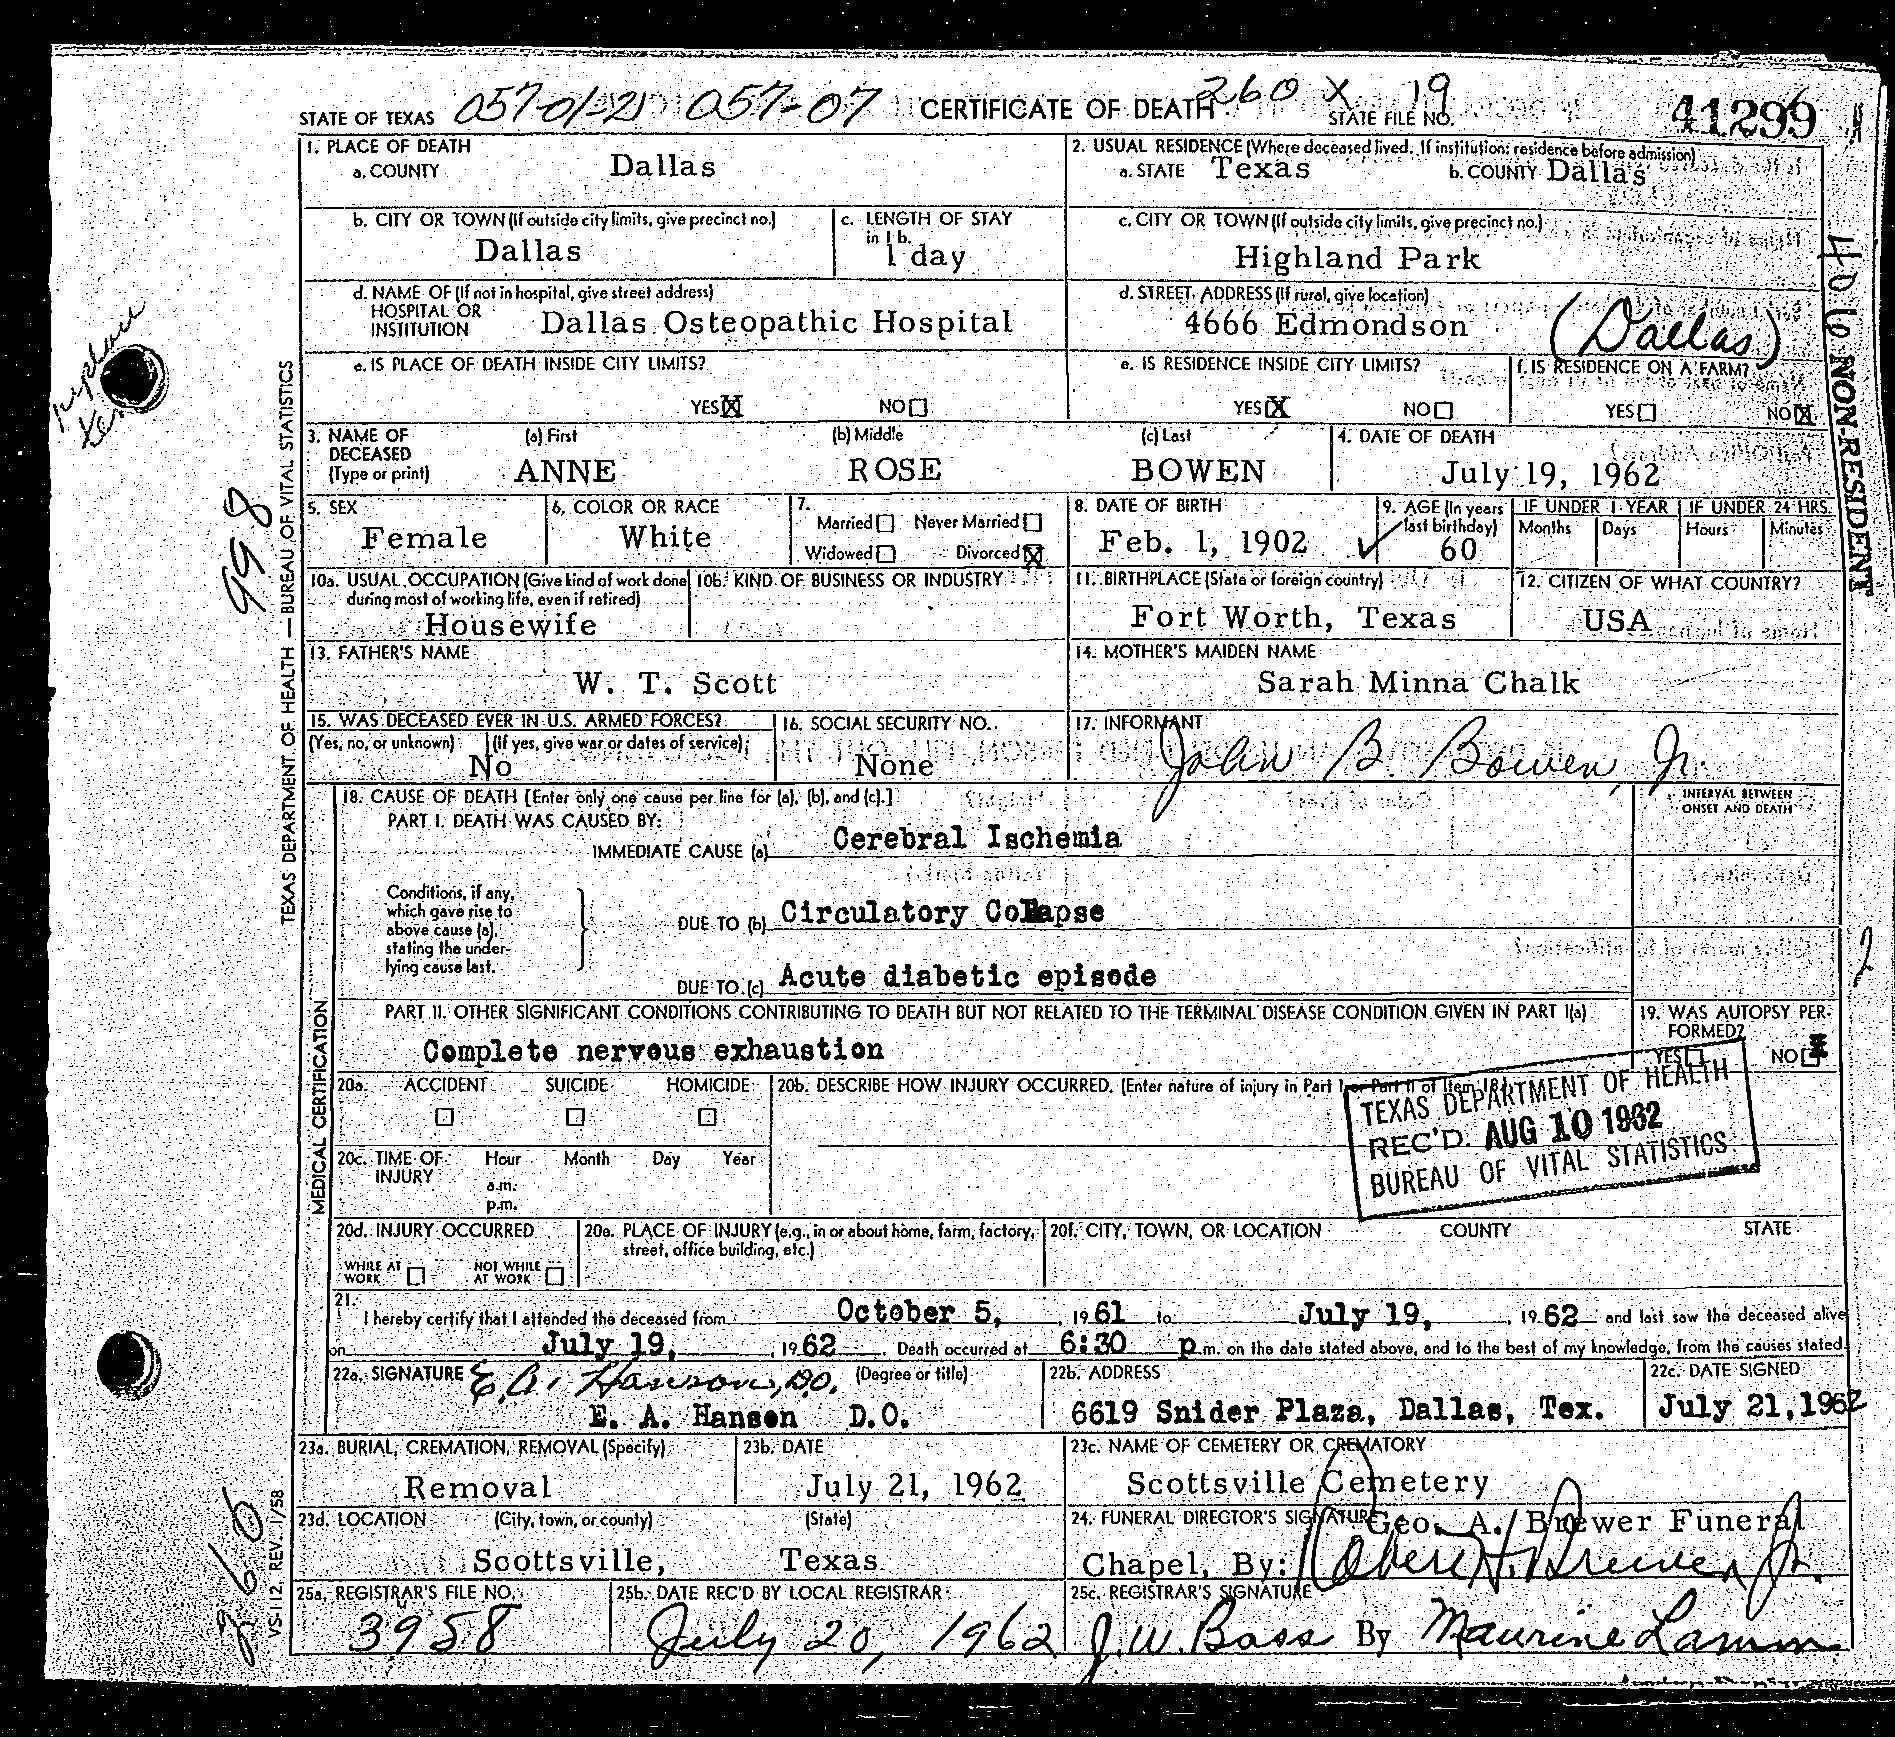 STATE OF TEXAS 057-01-21 057-07 CERTIFICATE OF DEATH 260 X 19 STATE FILE NO. 41299
1. PLACE OF DEATH
a. COUNTY Dallas
2. USUAL RESIDENCE (Where deceased lived. If institution: residence before admission)
a. STATE Texas b. COUNTY Dallas
b. CITY OR TOWN (If outside city limits, give precinct no.)
Dallas
c. LENGTH OF STAY
in 1 b.
1 day
c. CITY OR TOWN (If outside city limits, give precinct no.)
Highland Park
d. NAME OF (If not in hospital, give street address)
HOSPITAL OR
INSTITUTION Dallas Osteopathic Hospital
d. STREET ADDRESS (If rural, give location)
4666 Edmondson (Dallas)
e. IS PLACE OF DEATH INSIDE CITY LIMITS?
YES X NO
e. IS RESIDENCE INSIDE CITY LIMITS?
YES X NO
f. IS RESIDENCE ON A FARM?
YES NO X
NON-RESIDENT
3. NAME OF
DECEASED
(Type or print)
(a) First
ANNE
(b) Middle
ROSE
(c) Last
BOWEN
4. DATE OF DEATH
July 19, 1962
5. SEX
Female
6. COLOR OR RACE
White
7.
Married Never Married
Widowed Divorced X
8. DATE OF BIRTH
Feb. 1, 1902
9. AGE (In years
last birthday)
60
IF UNDER 1 YEAR
Months Days
IF UNDER 24 HRS.
Hours Minutes
10a. USUAL OCCUPATION (Give kind of work done
during most of working life, even if retired)
Housewife
10b. KIND OF BUSINESS OR INDUSTRY
11. BIRTHPLACE (State or foreign country)
Fort Worth, Texas
12. CITIZEN OF WHAT COUNTRY?
USA
13. FATHER'S NAME
W. T. Scott
14. MOTHER'S MAIDEN NAME
Sarah Minna Chalk
15. WAS DECEASED EVER IN U.S. ARMED FORCES?
(Yes, no, or unknown) (If yes, give war or dates of service)
No
16. SOCIAL SECURITY NO.
None
17. INFORMANT
John B. Bowen, Jr.
MEDICAL CERTIFICATION
18. CAUSE OF DEATH [Enter only one cause per line for (a), (b), and (c).]
PART I. DEATH WAS CAUSED BY:
IMMEDIATE CAUSE (a) Cerebral Ischemia
INTERVAL BETWEEN
ONSET AND DEATH
Conditions, if any,
which gave rise to
above cause (a),
stating the under-
lying cause last.
DUE TO (b) Circulatory Collapse
DUE TO (c) Acute diabetic episode
2
PART II. OTHER SIGNIFICANT CONDITIONS CONTRIBUTING TO DEATH BUT NOT RELATED TO THE TERMINAL DISEASE CONDITION GIVEN IN PART I(a)
Complete nervous exhaustion
19. WAS AUTOPSY PER-
FORMED?
YES NO X
20a. ACCIDENT SUICIDE HOMICIDE
20b. DESCRIBE HOW INJURY OCCURRED. (Enter nature of injury in Part I or Part II of Item 18)
TEXAS DEPARTMENT OF HEALTH
REC'D. AUG 10 1962
BUREAU OF VITAL STATISTICS
20c. TIME OF Hour Month Day Year
INJURY a.m.
p.m.
20d. INJURY OCCURRED
WHILE AT WORK NOT WHILE AT WORK
20e. PLACE OF INJURY (e.g., in or about home, farm, factory,
street, office building, etc.)
20f. CITY, TOWN, OR LOCATION COUNTY STATE
21.
I hereby certify that I attended the deceased from October 5, 1961 to July 19, 1962 and last saw the deceased alive
on July 19, 1962. Death occurred at 6:30 p.m. on the date stated above, and to the best of my knowledge, from the causes stated.
22a. SIGNATURE E. A. Hanson, D.O. (Degree or title)
E. A. Hanson D.O.
22b. ADDRESS
6619 Snider Plaza, Dallas, Tex.
22c. DATE SIGNED
July 21, 1962
23a. BURIAL, CREMATION, REMOVAL (Specify)
Removal
23b. DATE
July 21, 1962
23c. NAME OF CEMETERY OR CREMATORY
Scottsville Cemetery
23d. LOCATION (City, town, or county) (State)
Scottsville, Texas
24. FUNERAL DIRECTOR'S SIGNATURE Geo. A. Brewer Funeral
Chapel, By: Robert H. Brewer Jr.
25a. REGISTRAR'S FILE NO.
3958
25b. DATE REC'D BY LOCAL REGISTRAR
July 20, 1962
25c. REGISTRAR'S SIGNATURE
J. W. Bass By Maurine Lamm
TEXAS DEPARTMENT OF HEALTH — BUREAU OF VITAL STATISTICS
998
VS-112. REV. 1/58
260